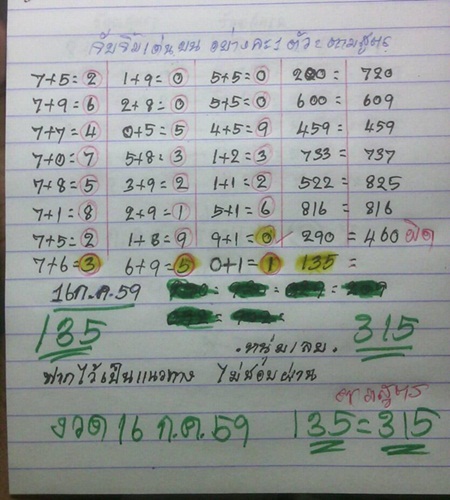 จับวิ่งเด่นบน อย่างละ1ตัว ตามสูตร
7+5=2 1+9=0 5+5=0 200= 720
7+9=6 2+8=0 5+5=0 600= 609
7+7=4 0+5=5 4+5=9 459= 459
7+0=7 5+8=3 1+2=3 733= 737
7+8=5 3+9=2 1+1=2 522= 825
7+1=8 2+9=1 5+1=6 816= 816
7+5=2 1+8=9 9+1=0 290= 460 ผิด
7+6=3 6+9=5 0+1=1 135=
16 ก.ค. 59
135 .หนุ่มเลย. 315
ฝากไว้เป็นแนวทาง ไม่ชอบผ่าน
ตามสูตร
งวด 16 ก.ค. 59 135=315